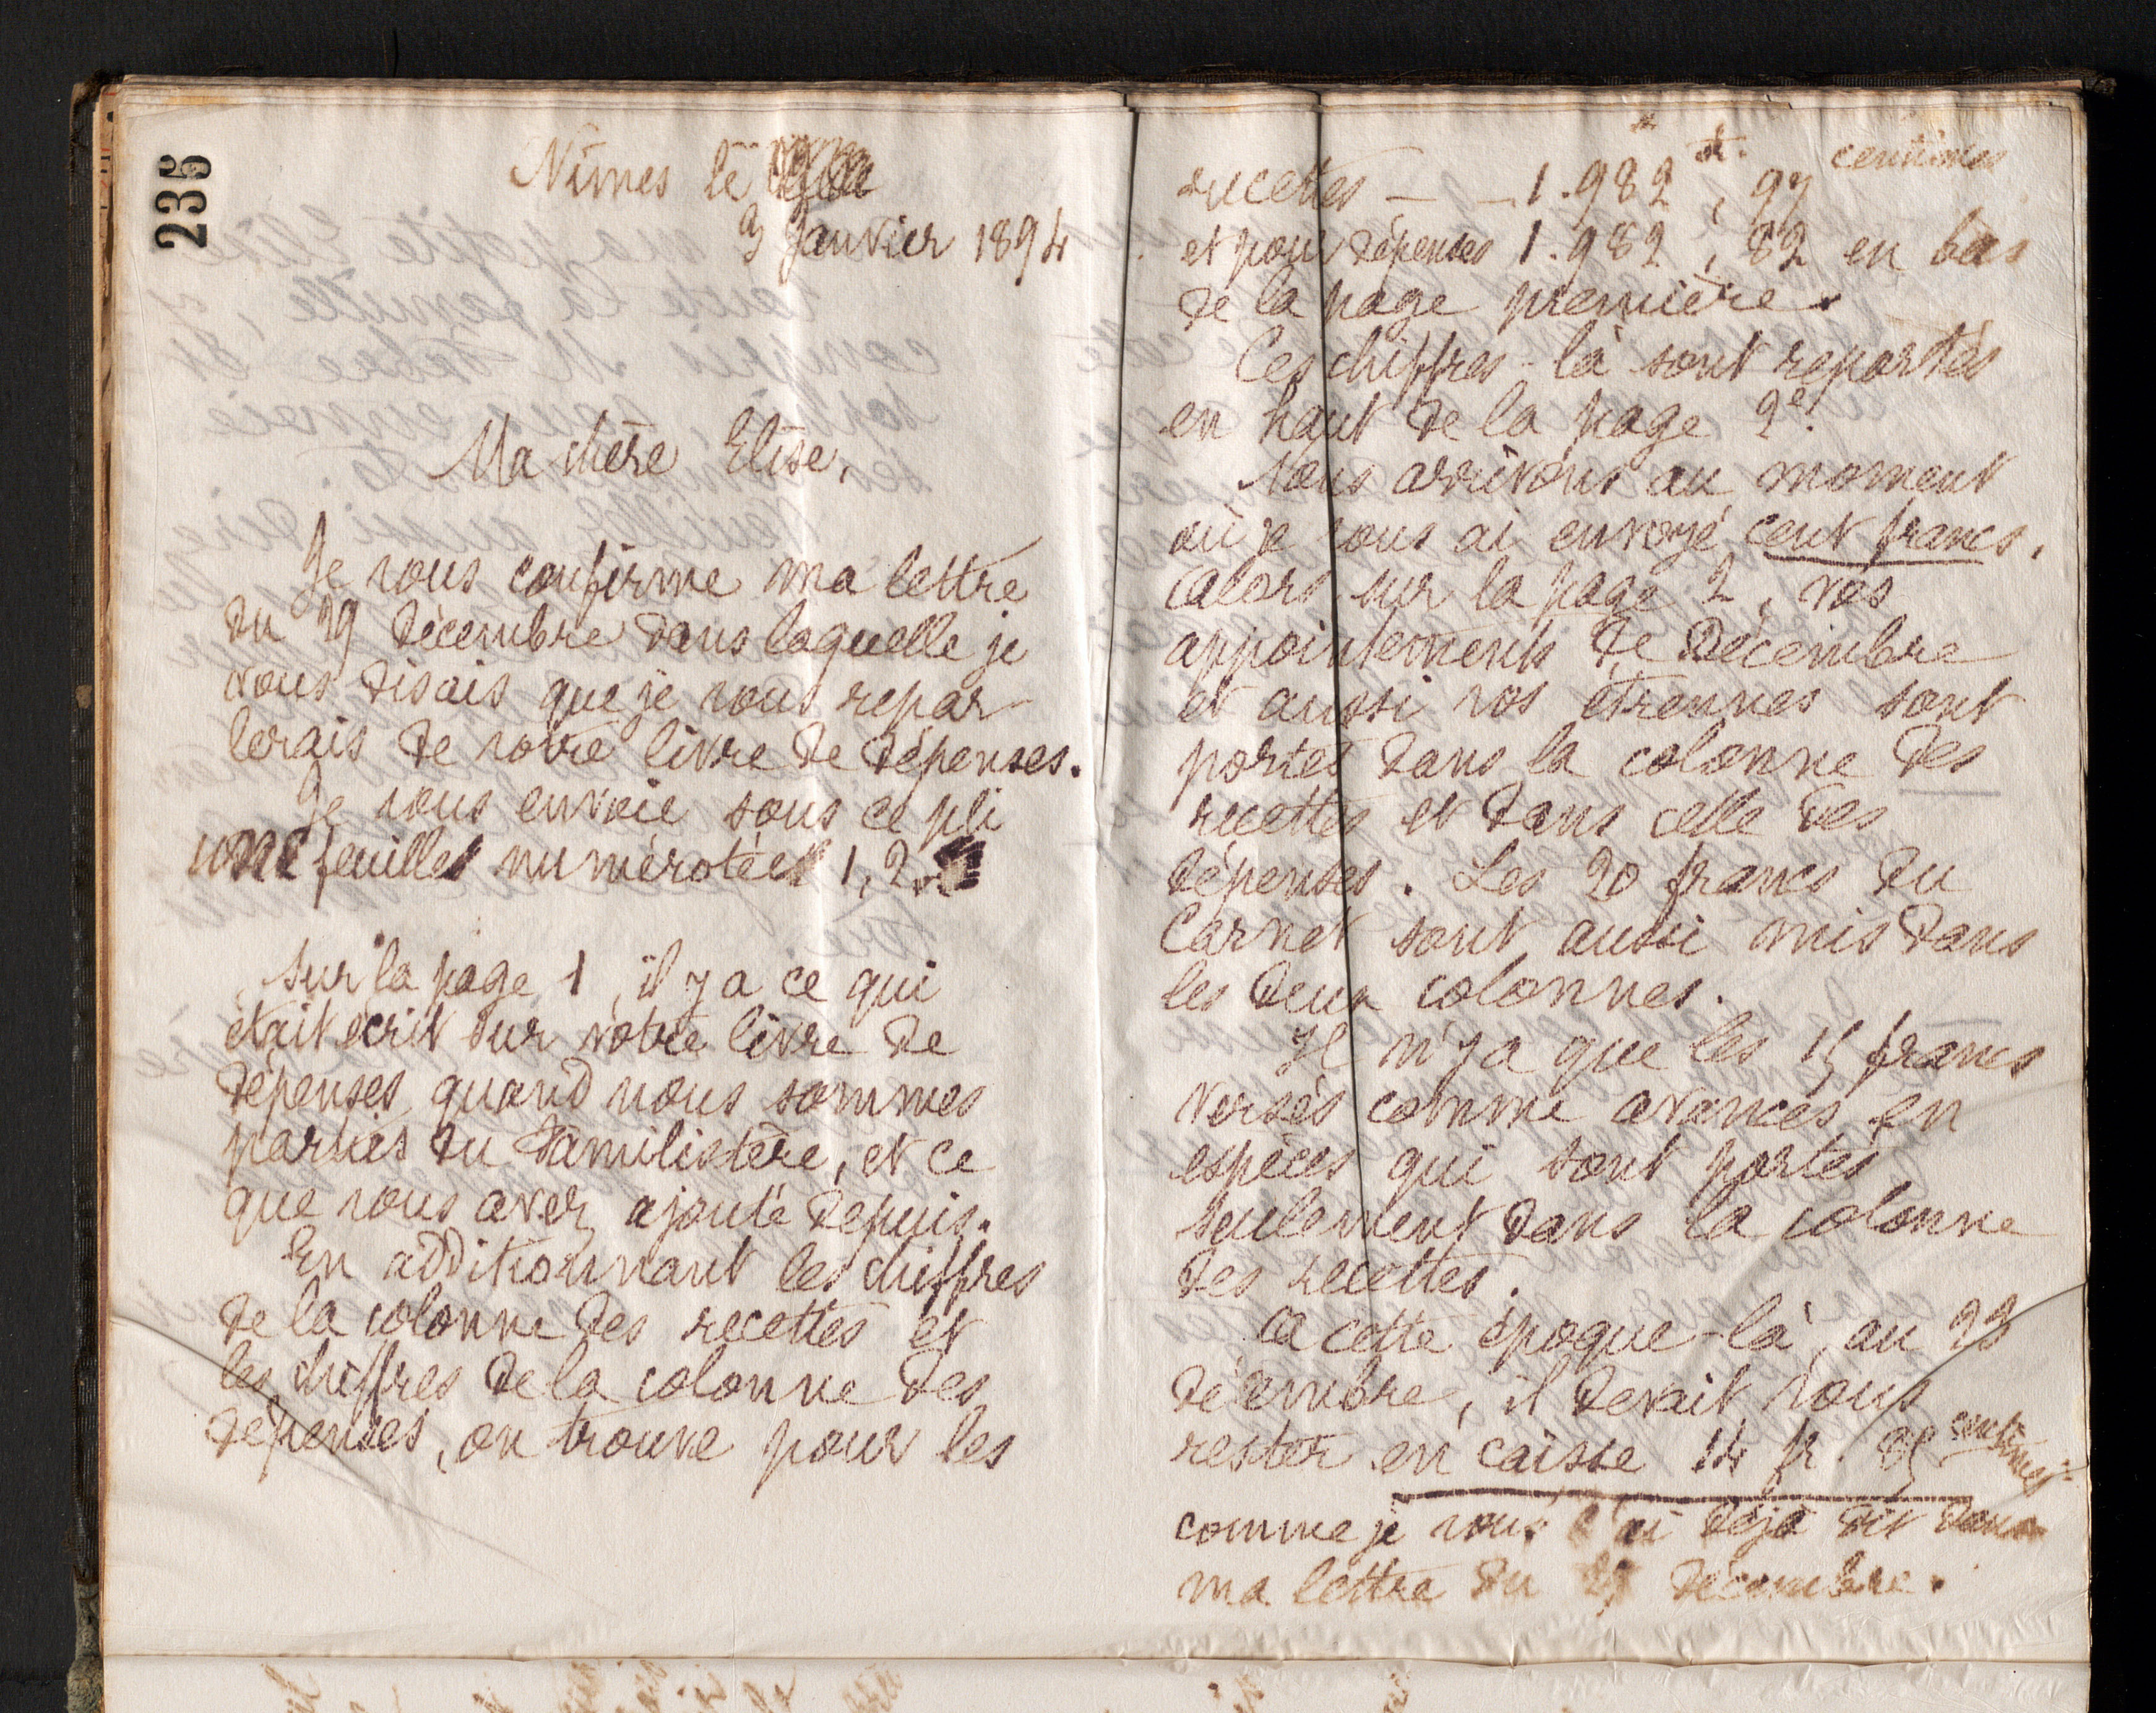 235
Nîmes le
3 Janvier 1894
Ma chère Elise,
Je vous confirme ma lettre
du 29 Décembre dans laquelle je
vous disais que je vous repar-
lerais de votre livre de dépenses.
Je vous envoie sous ce pli
une feuille numérotée 1, 2.
Sur la page 1, il y a ce qui
était écrit sur votre livre de
dépenses quand nous sommes
parties du Familistère, et ce
que vous avez ajouté depuis.
En additionnant les chiffres
de la colonne des recettes et
les chiffres de la colonne des
dépenses, on trouve pour les
recettes - - 1.982 fr., 97 centimes
et pour dépenses 1.982, 82 en bas
de la page première.
Ces chiffres-là sont reportés
en haut de la page 2e.
Nous arrivons au moment
où je vous ai envoyé cent francs.
Alors sur la page 2, vos
appointements de Décembre
et aussi vos étrennes sont
portés dans la colonne des
recettes et dans celle des
dépenses. Les 20 francs du
Carnet sont aussi mis dans
les deux colonnes.
Il n'y a que les 15 francs
versés comme avances en
espèces qui sont portés
seulement dans la colonne
des recettes.
A cette époque-là, au 23
décembre, il devait vous
rester en caisse 14 fr. 85 centimes
comme je vous l'ai déjà dit dans
ma lettre du décembre.